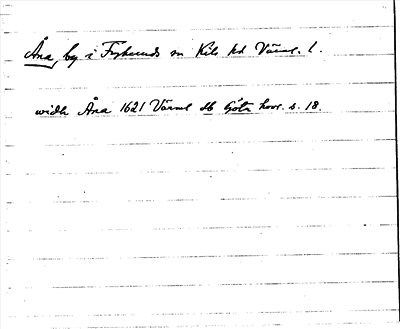 Åna, by i Fryksunds sn Kils hd Värml. l.
widh Åna 1621 Värml db Göta hovr. s. 18.